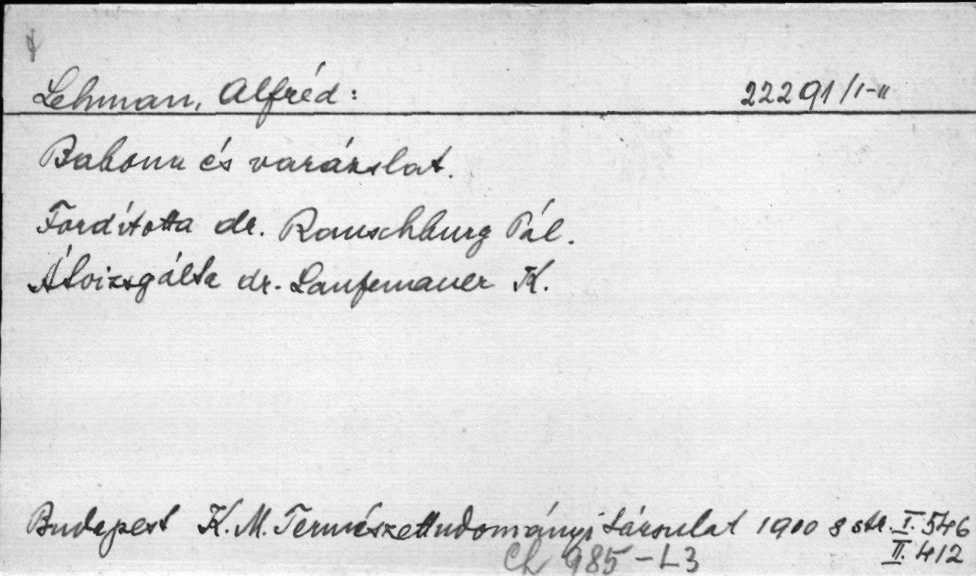 Lehman, Alfréd: 22291/I-II
Babona és varázslat.
Fordította dr. Ranschburg Pál.
Átvizsgálta dr. Laufenauer K.
Budapest K. M. Természettudományi társulat 1900 8 str. I. 546
II. 412
Ch 985-L3